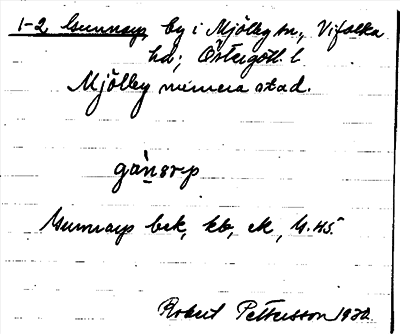 1-2 Gunnarp by i Mjölby sn, Vifolka
hd; Östergötl. l
Mjölby numera stad.
gànarp
Gunnarp bek, kb, ek,
Robert Pettersson 1930